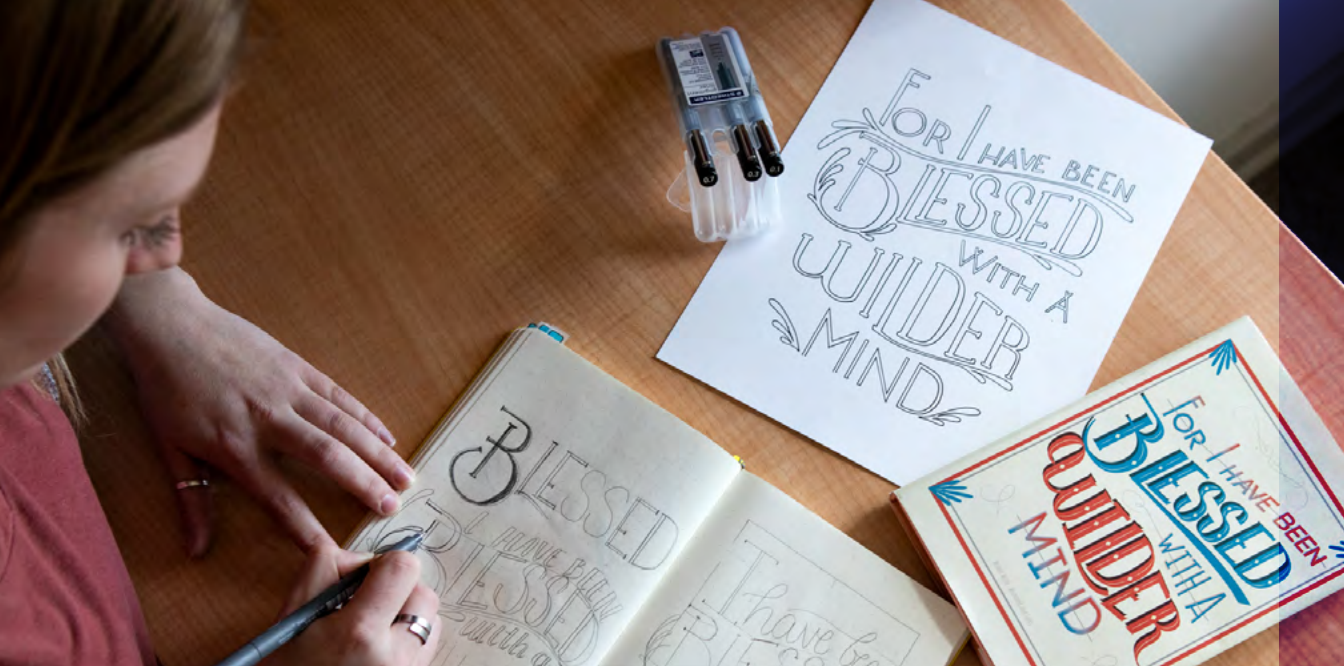 STAEDTLER
0.7
0.3
0.1
FOR I HAVE BEEN
BLESSED
WITH A
WILDER
MIND
BLESSED
I HAVE BEEN
BLESSED
with a
I have be
BLESS
FOR I HAVE BEEN
BLESSED
WITH A
WILDER
MIND